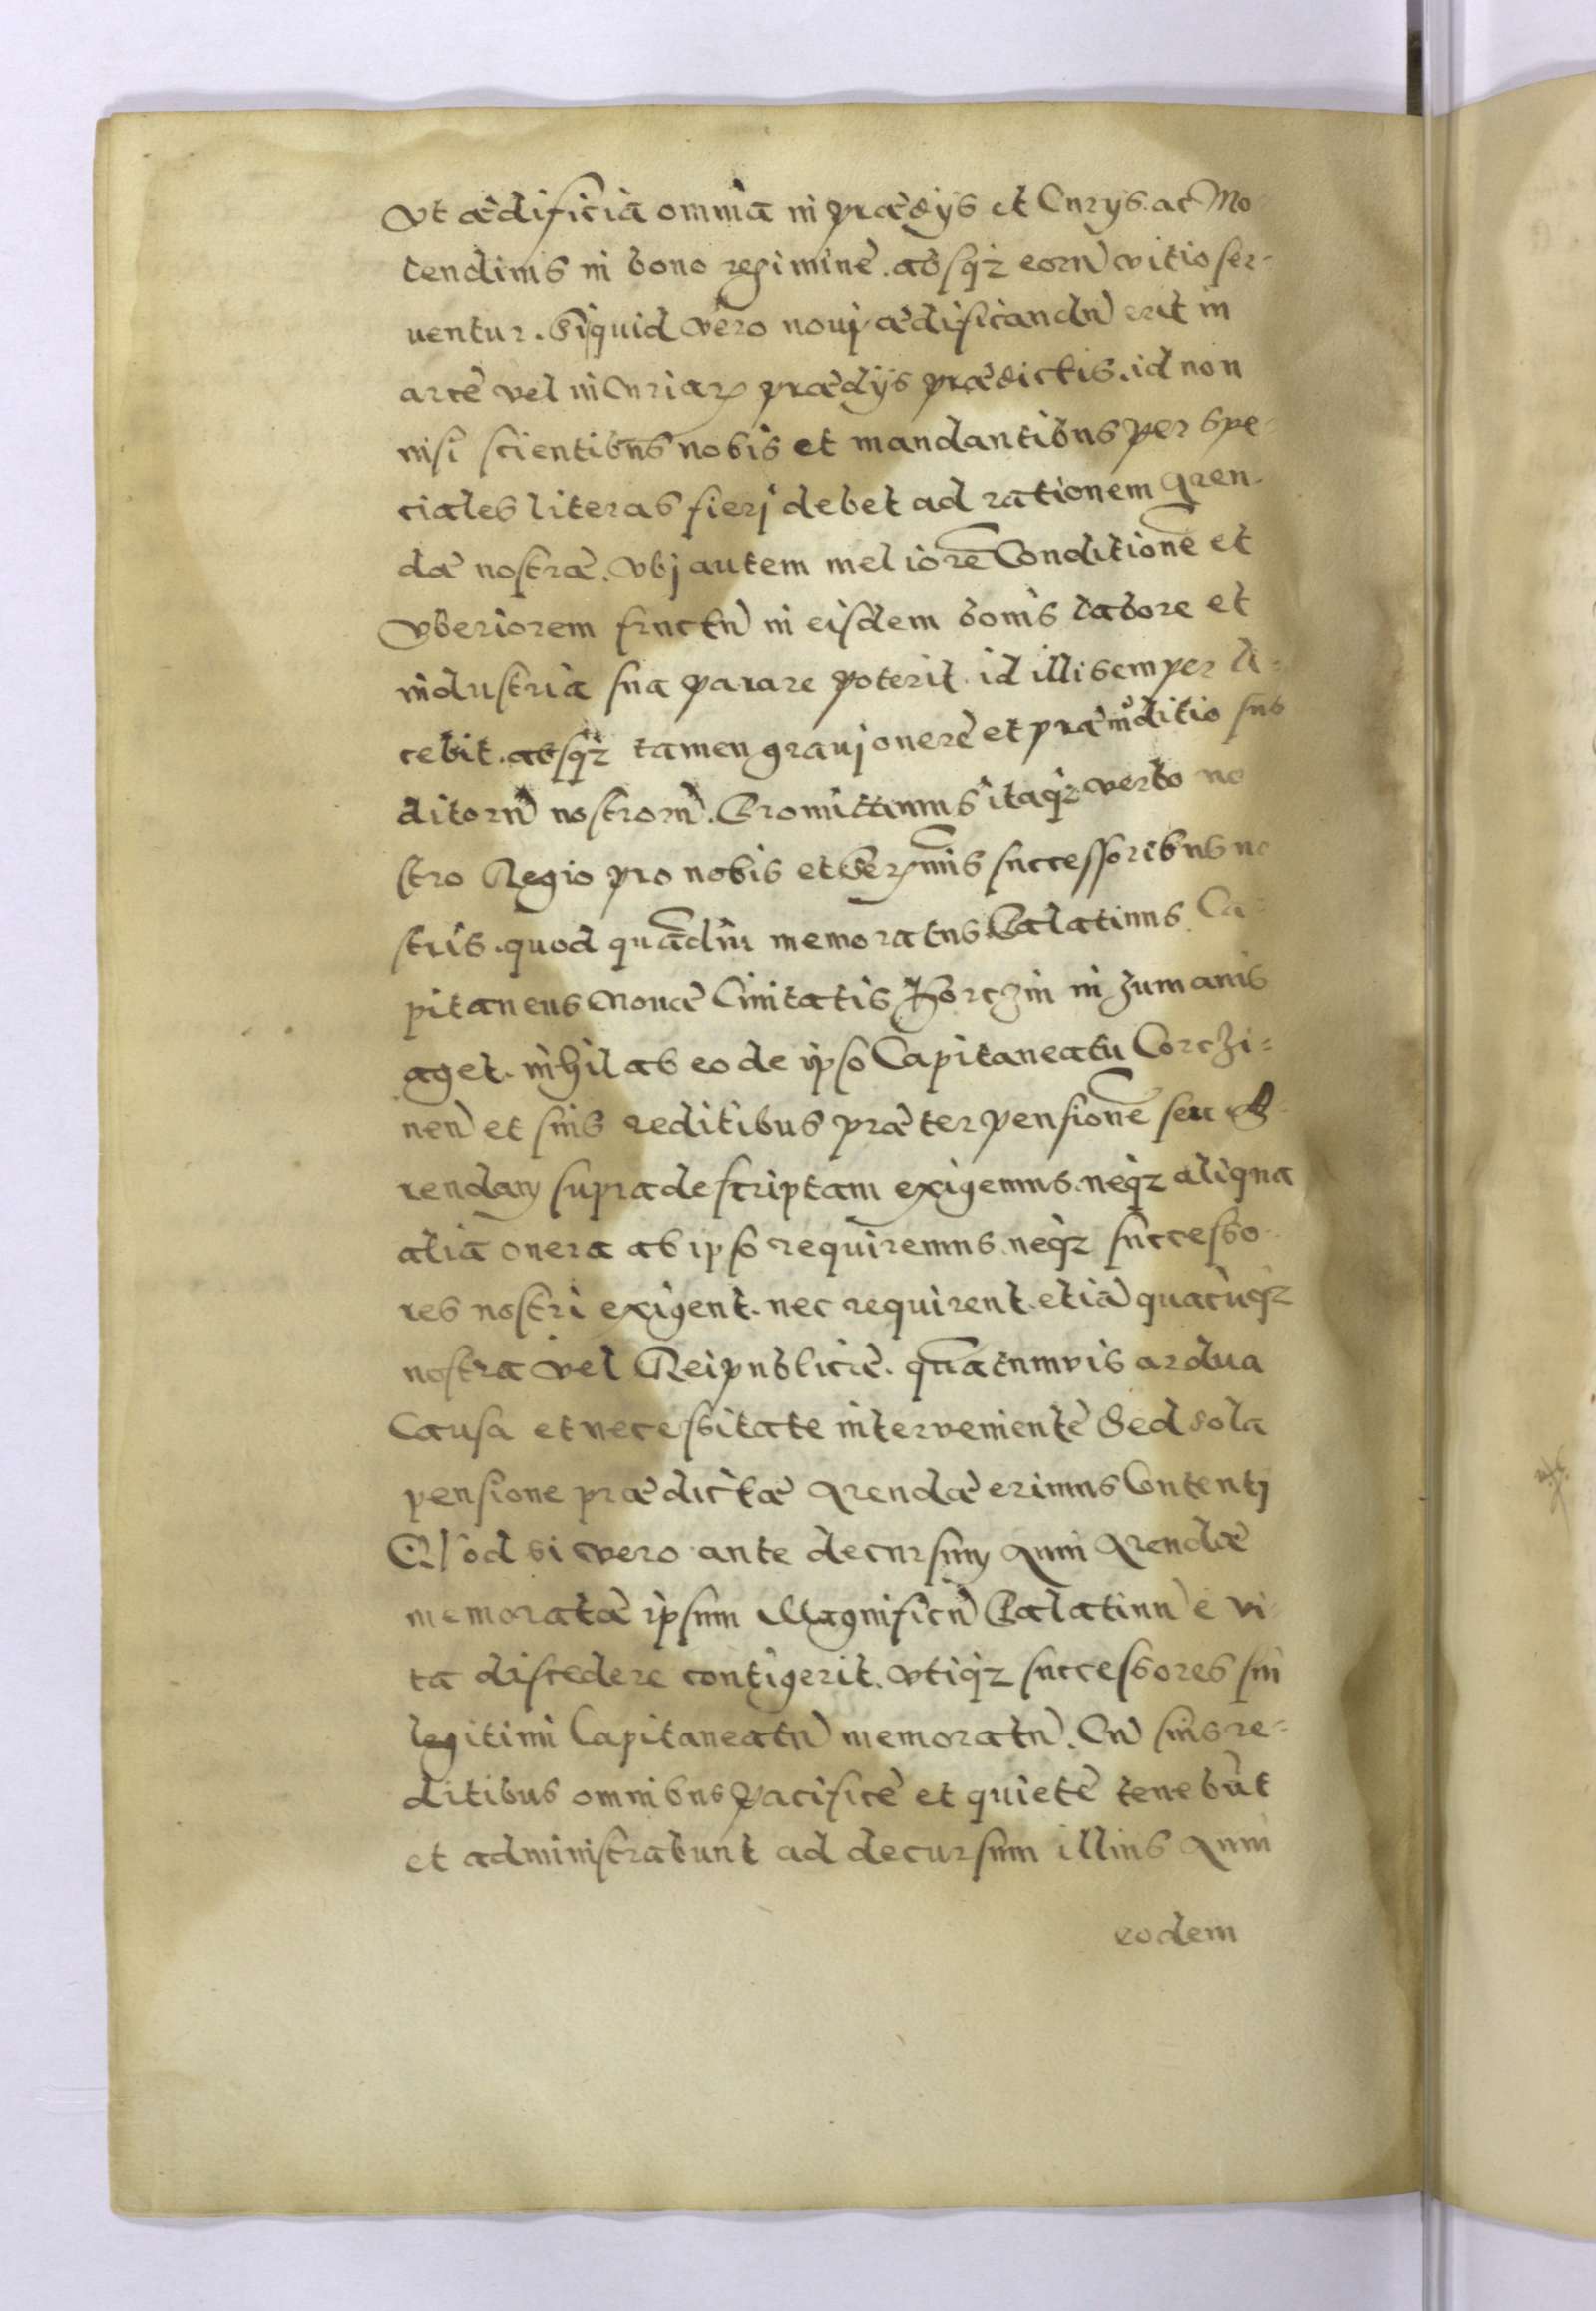 Vt ædificia omnia in prædijs et Curijs. ac Mo-
lendinis in bono regimine. absq₃ eorū vitio ser-
uentur. Siquid vero nouj ædificandū erit in
arce vel in Curiarꝝ prædijs prædictis. id non
nisi scientibus nobis et mandantibus per spe-
ciales literas fierj debet ad rationem Aren-
dæ nostræ. Vbj autem meliorē Conditionē et
Vberiorem fructū in eisdem bonis labore et
industria sua parare poterit. id illi semper li-
cebit. absq₃ tamen grauj onere et præiuditio sub
ditorū nostrorū. Promittimus itaq₃ verbo no
stro Regio pro nobis et Serꝫmis successoribus no
stris. quod quādiu memoratus Palatinus Ca-
pitaneus Nouæ Ciuitatis Korczin in humanis
aget. nihil ab eo de ipso Capitaneatu Corczi-
nen̄ et suis reditibus præter pensionē seu A-
rendam supradescriptam exigemus. neq₃ aliqua
alia onera ab ipso requiremus. neq₃ successo-
res nostri exigent. nec requirent. etiā quacūq₃
nostra vel Reipublicæ. quātumvis ardua
Causa et necessitate interveniente Sed sola
pensione prædictæ Arendæ erimus Contentj
Quod si vero ante decursum Anni Arendæ
memoratæ ipsum Magnificū Palatinū e vi-
ta discedere contigerit. vtiq₃ successores sui
legitimi Capitaneatū memoratū. Cū suis re-
ditibus omnibus pacifice et quiete tenebūt
et administrabunt ad decursum illius Anni
eodem